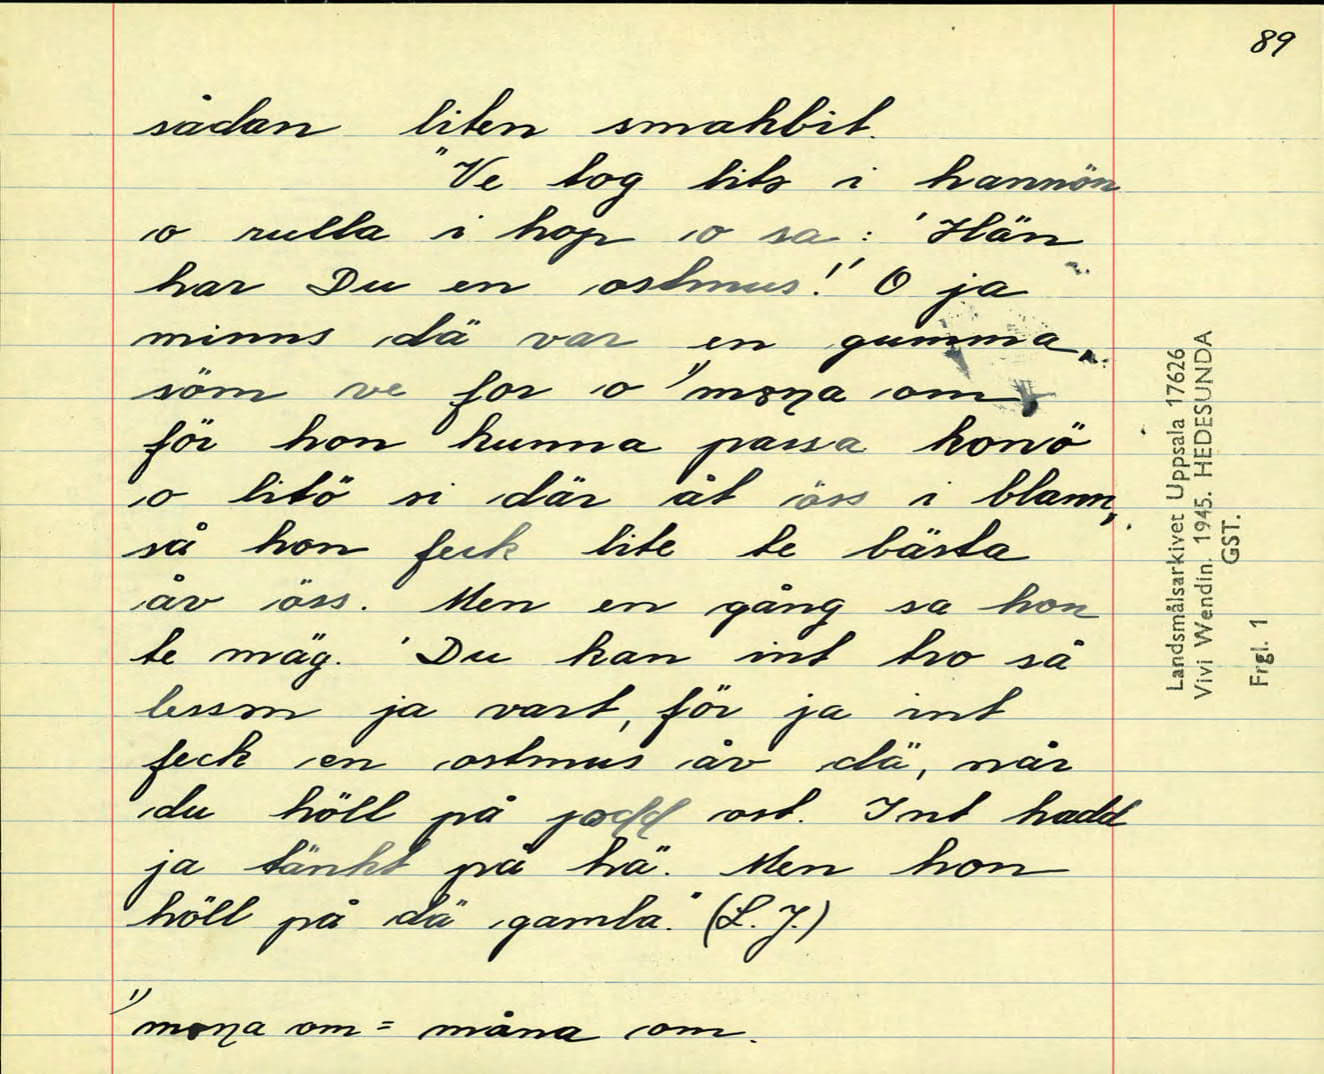 89
sådan liten smakbit.
"Ve tog lits i hannön
o rulla i hop o sa: 'Hän
har Du en ostmus!' O ja
minns dä var en gumma,
söm ve for o ¹⁾mɷna om,
för hon kunna passa konö
o litö si där åt öss i blann,
så hon feck lite te bästa
åv öss. Men en gång sa hon
te mäg. 'Du kan int tro så
lessm ja vart, för ja int
feck en ostmus åv dä, når
du höll på jodd ost. Int hadd
ja tänkt på hä. Men hon
höll på dä gamla." (L.J.)
¹⁾mɷna om = måna om.
Landsmålsarkivet Uppsala 17626
Vivi Wendin. 1945. HEDESUNDA
GST.
Frgl. 1